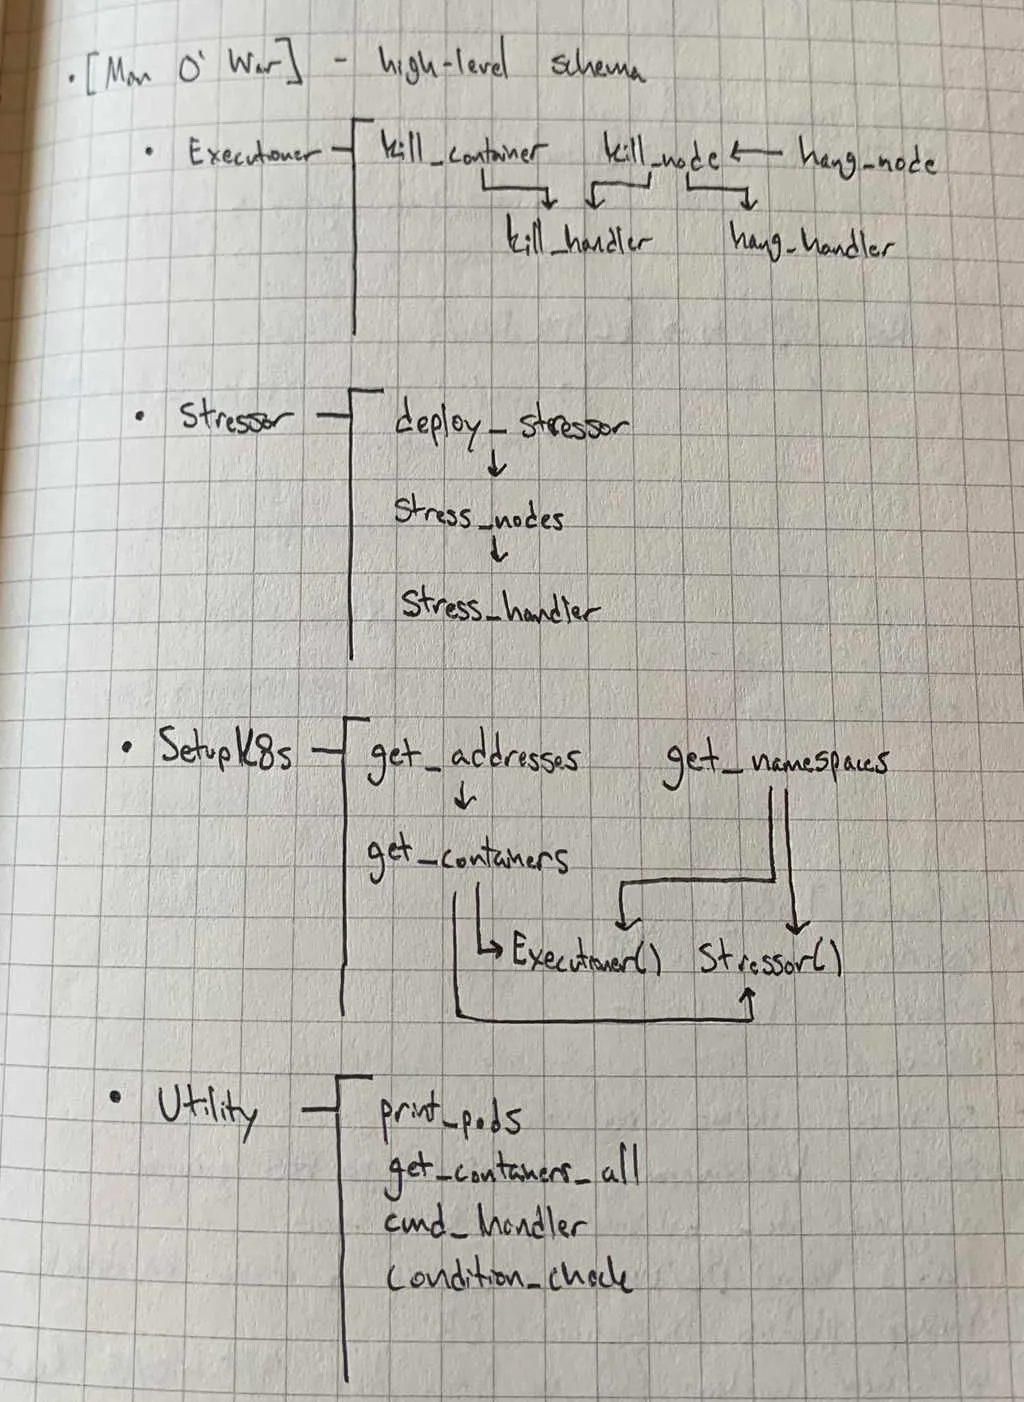 • [Man O' War] - high-level schema
• Executioner kill_container kill_node ← hang_node
kill_handler hang_handler
• Stressor deploy_stressor
↓
stress_nodes
↓
stress_handler
• SetupK8s get_addresses get_namespaces
↓
get_containers
Executioner() Stressor()
• Utility print_pods
get_containers_all
cmd_handler
condition_check